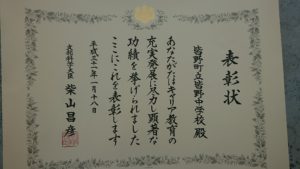 表彰状
皆野町立皆野中学校 殿
あなたがたはキャリア教育の
充実発展に尽力し顕著な
功績を挙げられました
ここにこれを表彰します
平成三十一年一月十八日
文部科学大臣 柴山昌彦